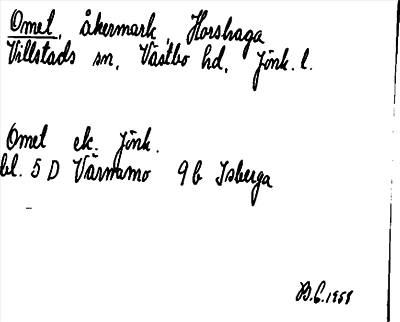 Omet, åkermark, Horshaga
Villstads sn, Västbo hd, Jönk. l.
Omet ek. Jönk.
bl. 5 D Värnamo 9 b Isberga
B.G. 1958